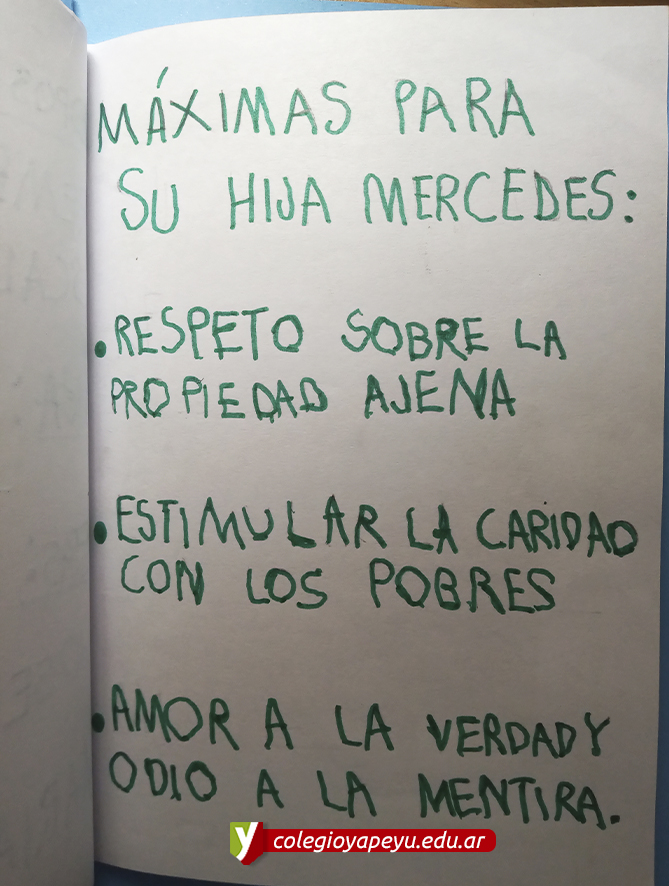 MÁXIMAS PARA
SU HIJA MERCEDES:
.RESPETO SOBRE LA
PROPIEDAD AJENA
.ESTIMULAR LA CARIDAD
CON LOS POBRES
.AMOR A LA VERDAD Y
ODIO A LA MENTIRA.
y colegioyapeyu.edu.ar